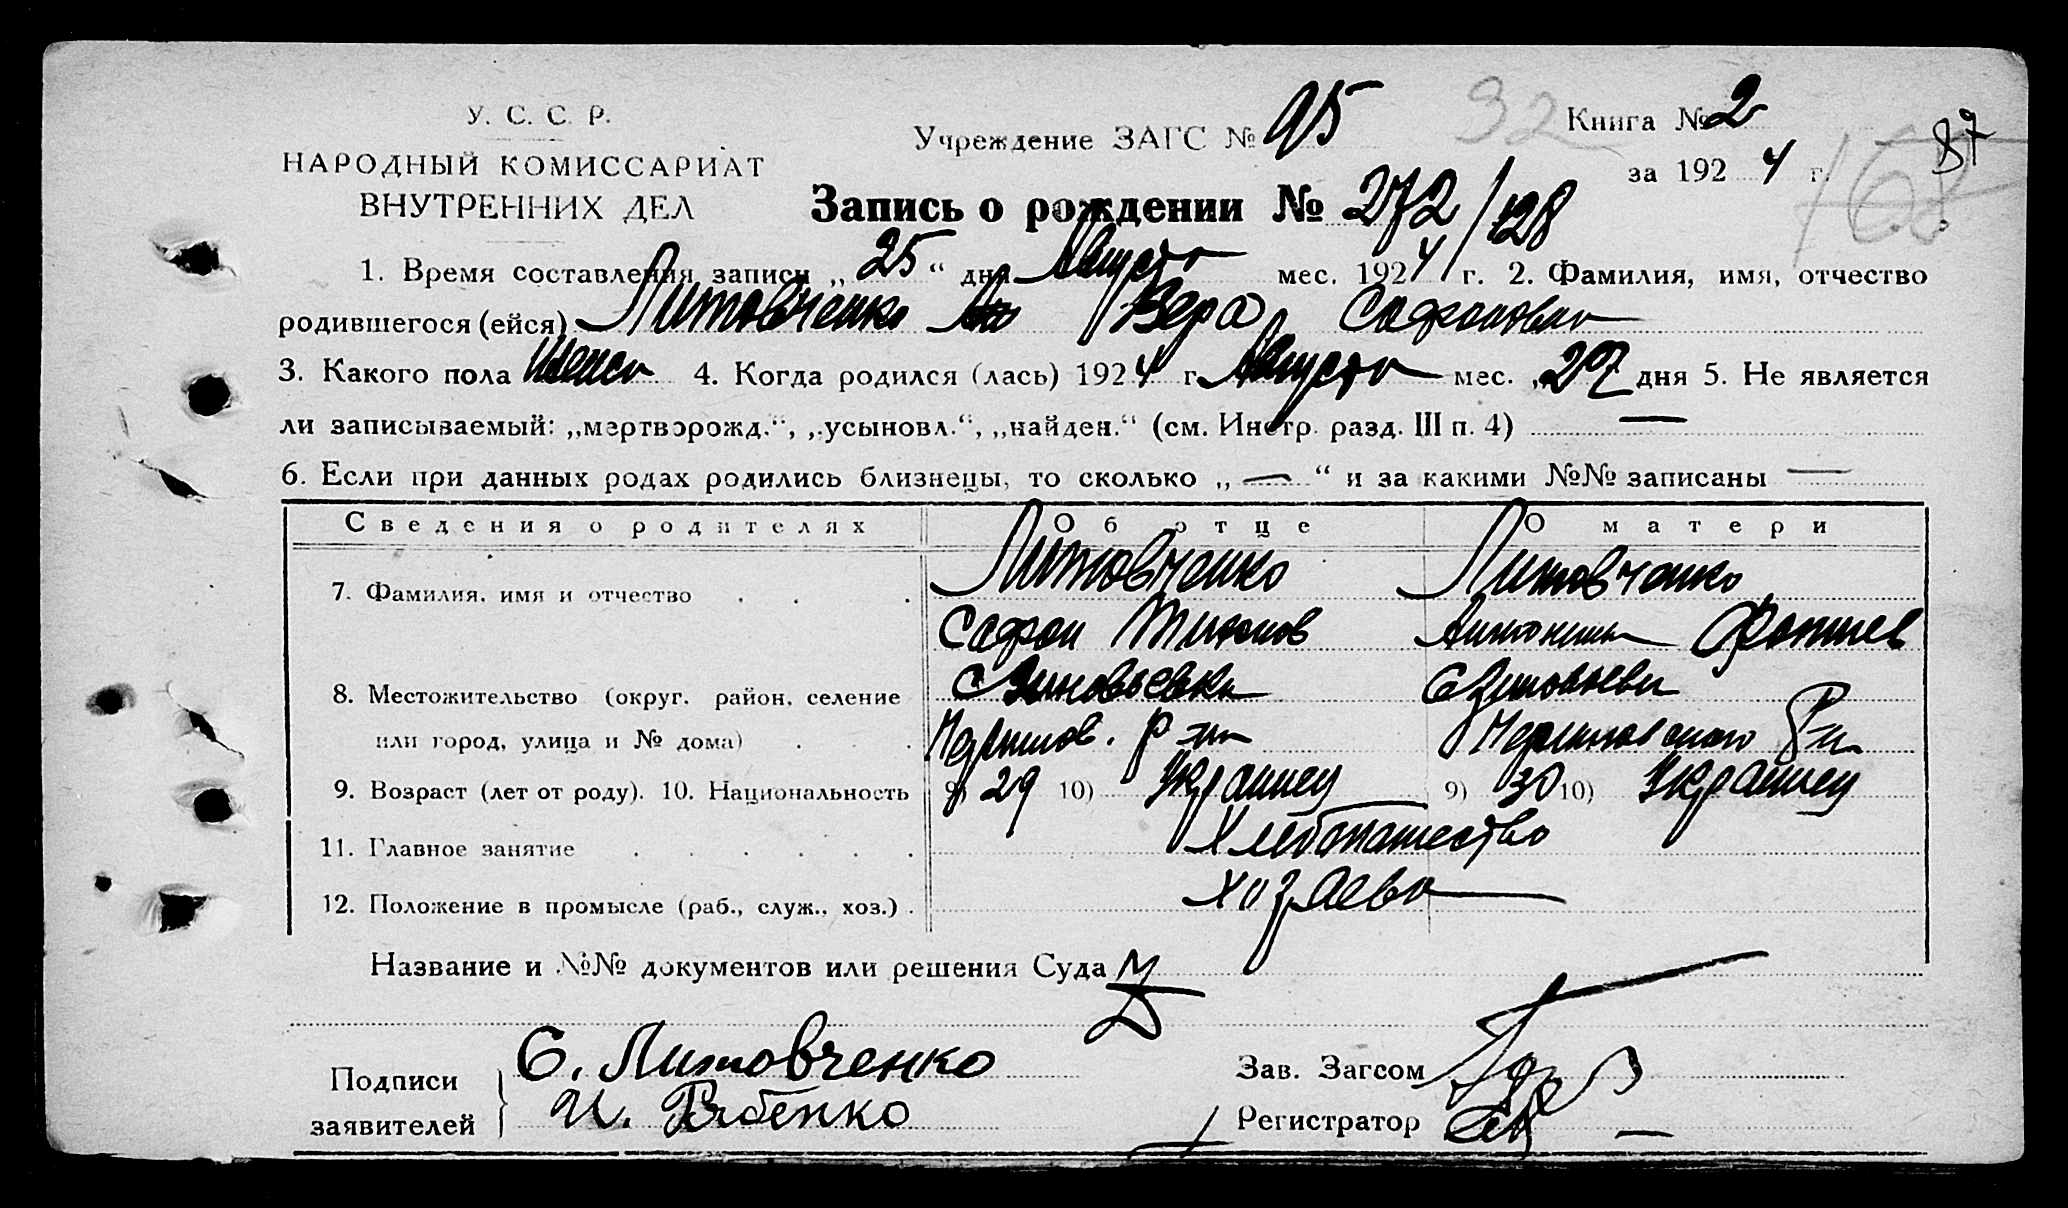 У. С. С. Р.
НАРОДНЫЙ КОМИССАРИАТ
ВНУТРЕННИХ ДЕЛ
Учреждение ЗАГС № 95
32
Книга № 2
за 1924 г.
87
168
Запись о рождении № 272/128
1. Время составления записи „25“ дня Августа мес. 1924 г. 2. Фамилия, имя, отчество
родившегося (ейся) Литовченко Вера Сафоновна
3. Какого пола женск 4. Когда родился (лась) 1924 г. Августа мес. „27 дня 5. Не является
ли записываемый: „мертворожд.“, „усыновл.“, „найден.“ (см. Инстр. разд. III п. 4) —
6. Если при данных родах родились близнецы, то сколько „—“ и за какими №№ записаны —
Сведения о родителях Об отце О матери
7. Фамилия, имя и отчество Литовченко Литовченко
Сафон Тихонов Антонина Фотиев
8. Местожительство (округ, район, селение С Зиновьевка С Зиновьевка
или город, улица и № дома) р-на р-на
9. Возраст (лет от роду). 10. Национальность 9) 29 10) Украинец 9) 30 10) Украинец
11. Главное занятие Хлебопашество
12. Положение в промысле (раб., служ., хоз.) Хозяева
Название и №№ документов или решения Суда
Подписи заявителей С. Литовченко
И. Рябенко
Зав. Загсом
Регистратор